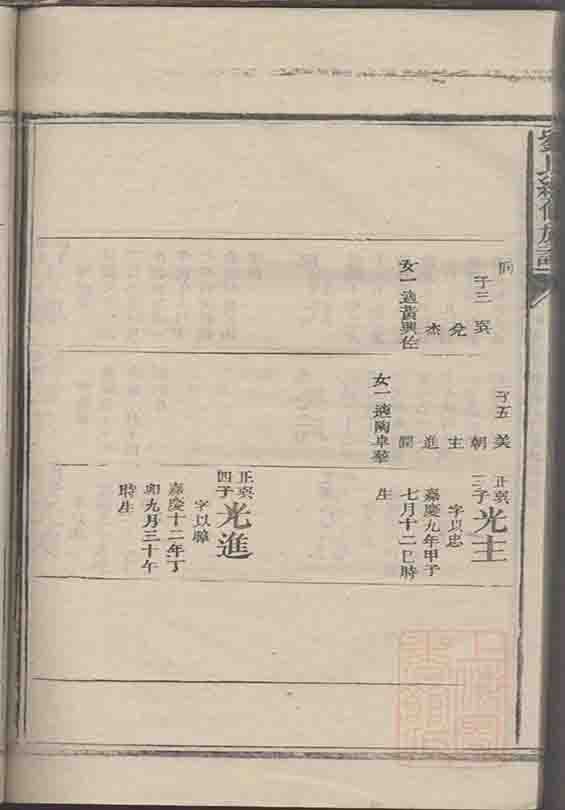 劉氏續修族譜
向
子三 㺯
兊
杰
女一適黃興佐
子五 美
朝
主
進
女一適陶卓華
正㺯三子 光主
字以忠
嘉慶九年甲子
七月十二巳時
生
正㺯四子 光進
字以
嘉慶十二年丁
卯九月三十午
時生